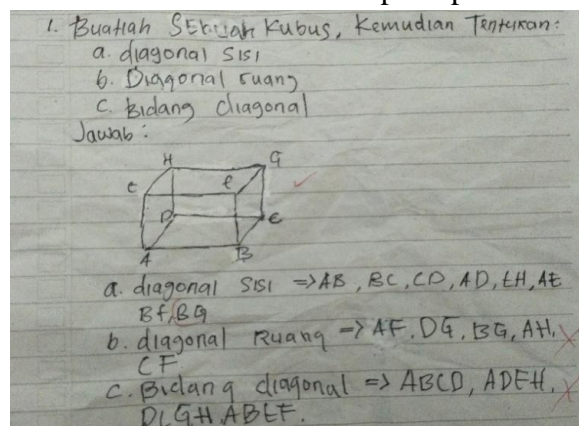 1. Buatlah Sebuah Kubus, Kemudian Tentukan:
a. diagonal sisi
b. Diagonal ruang
c. Bidang diagonal
Jawab:
H G
E F
D C
A B
a. diagonal sisi => AB, BC, CD, AD, EH, AE
BF, BG
b. diagonal Ruang => AF, DG, BG, AH,
CF
c. Bidang diagonal => ABCD, ADEH,
DCGH, ABEF.